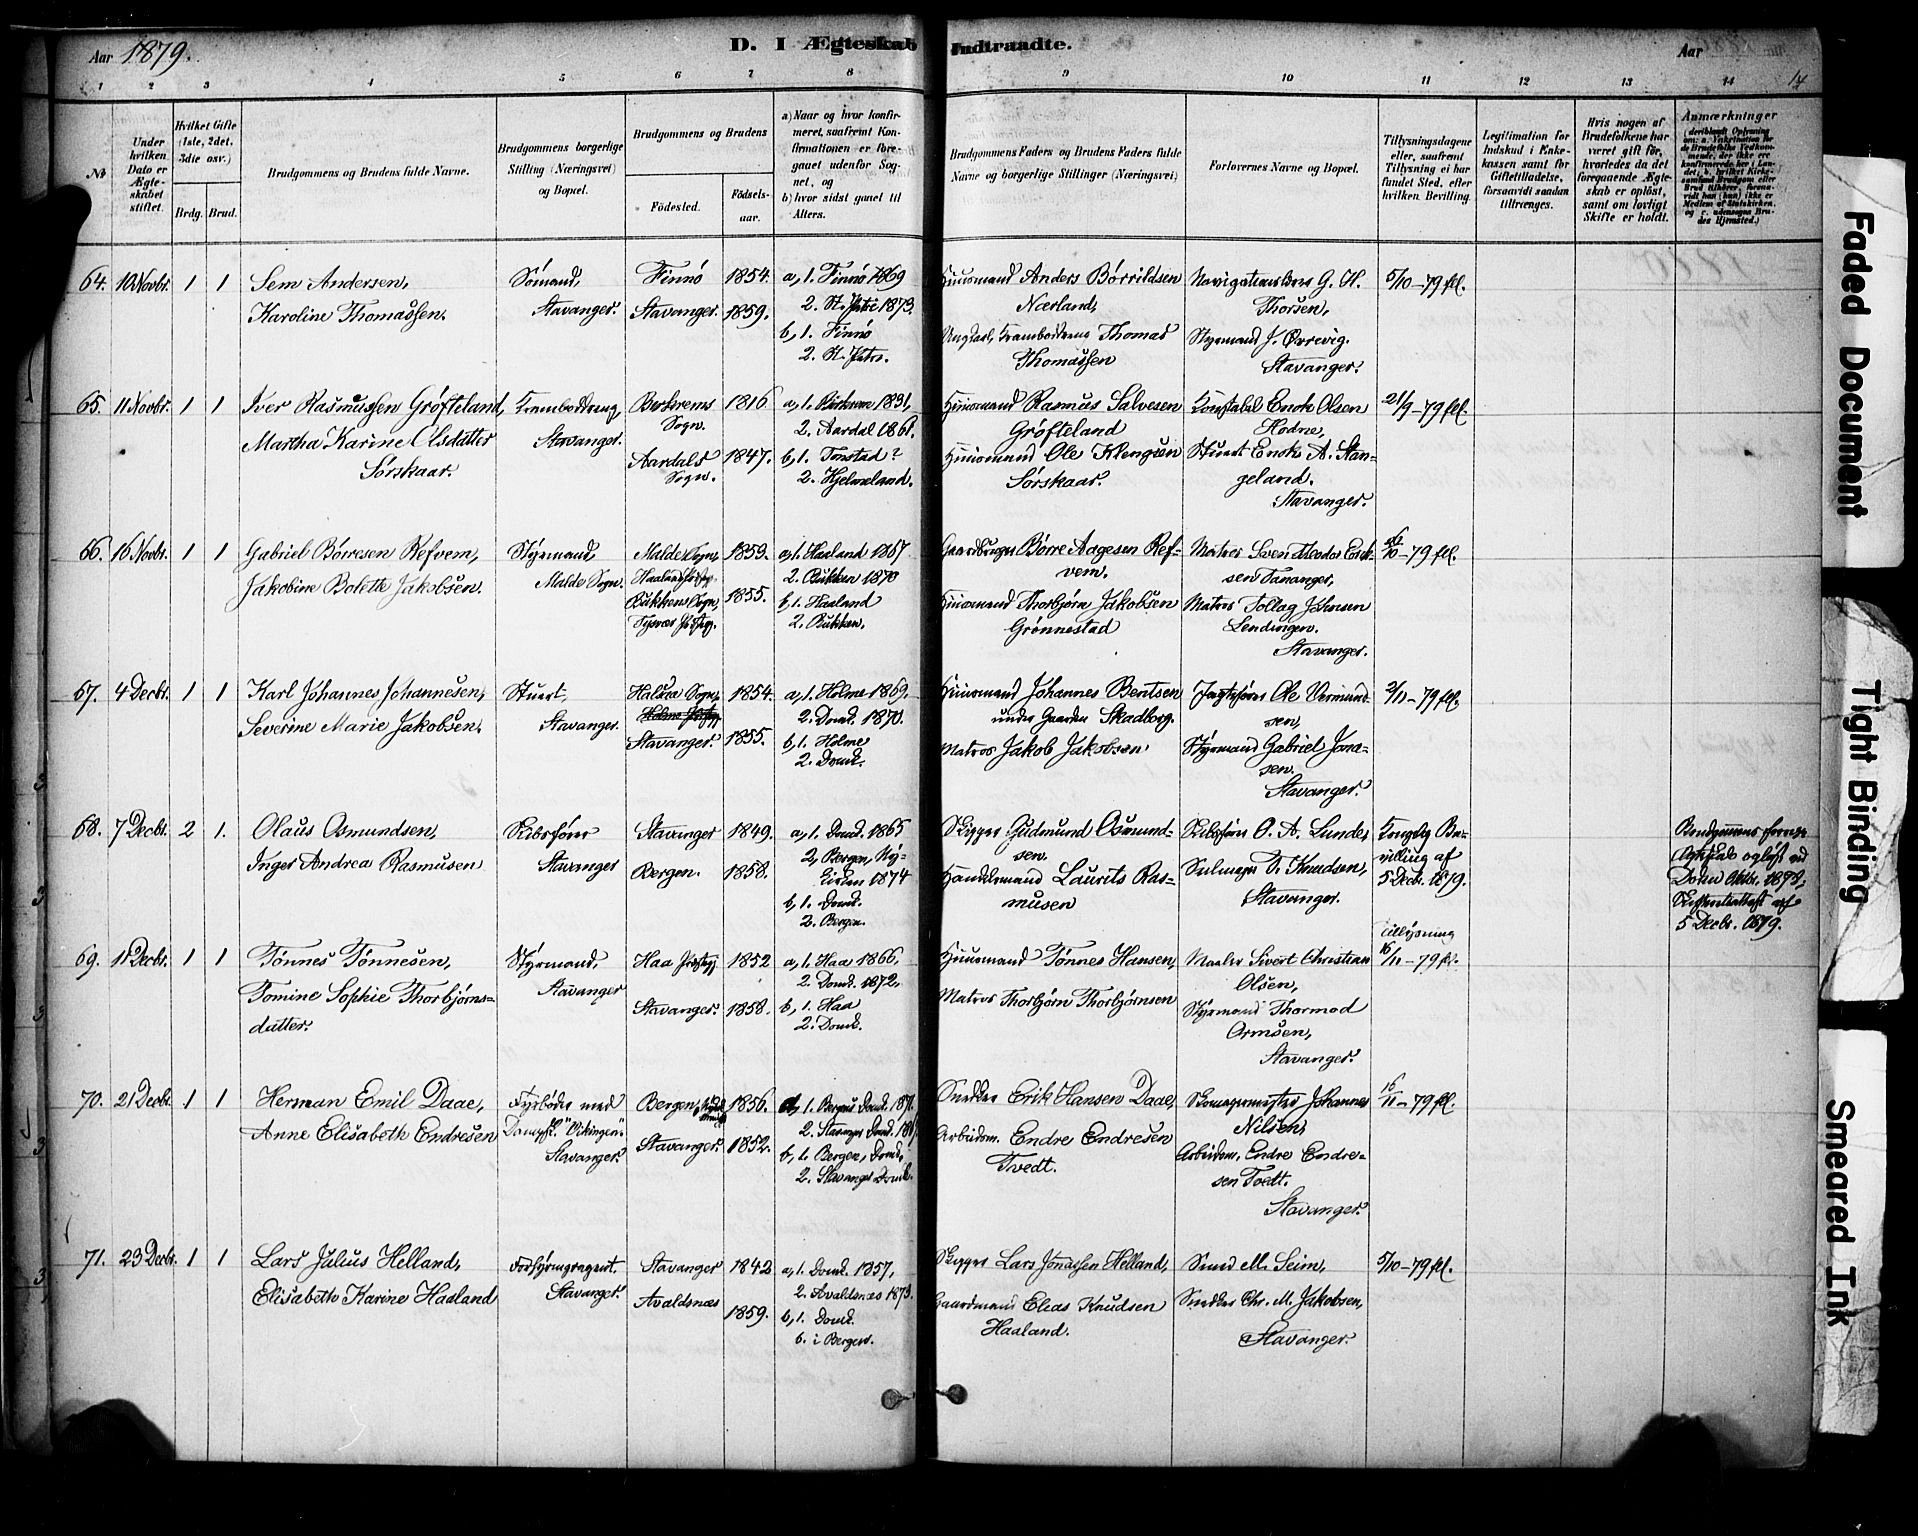 Aar 1879. D. I Ægteskab Indtraadte. Aar
1 2 3 4 5 6 7 8 9 10 11 12 13 14
№
Under hvilken Dato er Ægteskabet stiftet.
Hvilket Gifte (1ste, 2det, 3die osv.)
Brdg. Brud.
Brudgommens og Brudens fulde Navne.
Brudgommens borgerlige Stilling (Næringsvei) og Bopæl.
Brudgommens og Brudens
Födested. Födselsaar.
a) Naar og hvor konfirmeret, saafremt Konfirmationen er foregaaet udenfor Sognet, og
b) hvor sidst gaaet til Alters.
Brudgommens Faders og Brudens Faders fulde Navne og borgerlige Stillinger (Næringsvei)
Forlovernes Navne og Bopæl.
Tillysningsdagene eller, saafremt Tillysning ei har fundet Sted, efter hvilken Bevilling.
Legitimation for Indskud i Enkekassen samt for Giftetilladelse, forsaavidt saadan tiltrænges.
Hvis nogen af Brudefolkene har været gift før, hvorledes da det foregaaende Ægteskab er oplöst, samt om lovligt Skifte er holdt.
Anmærkninger
64. 10 Novbr. 1 1 Sem Andersen, Sömand, Finnö 1854. a, 1. Finnö 1869 Huusmand Anders Børrildsen Navigationslærer G. H. 5/10-79 fll.
Karoline Thomassen. Stavanger. Stavanger. 1859. 2. St. Petri 1873. Nærland, Thorsen,
b, 1. Finnö Ungkarl, Trambodreng Thomas Styrmand J. Ørrevig.
2. St. Petri. Thomassen Stavanger.
65. 11 Novbr. 1 1 Iver Rasmussen Gröfteland, Trambodreng, Berkrems Sogn. 1816 a, 1. Birkrem 1831, Huusmand Rasmus Salvesen Konstabel Enok Olsen 21/9-79 fll.
Martha Karine Olsdatter Stavanger. Aardals Sogn. 1847. 2. Aardal 1861. Gröfteland Hodne,
Sörskaar. b, 1. Tonstad? Huusmand Ole Klengsen Stuert Enok A. Stangeland.
2. Hjelmeland. Sörskaar. Stavanger.
66. 16 Novbr. 1 1 Gabriel Börresen Refvem, Styrmand, Malde Sogn, 1859. a, 1. Haaland 1867 Gaardbruger Börre Aagesen Refvem. Matros Sven Theodor 26/10-79 fll.
Jakobine Bolette Jakobsen. Malde Sogn. Bukken Sogn, 1855. 2. Bukken 1870 Tananger,
Tysvær b, 1. Haaland Huusmand Thorbjörn Jakobsen Matros Tollag Johnsen
2. Bukken. Grönnestad Lendingen. Stavanger.
67. 4 Decbr. 1 1 Karl Johannes Johannesen, Stuert, Halsaa Sogn, 1854. a, 1. Holme 1869. Huusmand Johannes Bentsen Jagtfører Ole Vermundsen, 2/11-79 fll.
Severine Marie Jakobsen. Stavanger. Stavanger. 1855. 2. Domk. 1870. under Gaarden Skadberg.
b, 1. Holme Matros Jakob Jakobsen Styrmand Gabriel Jonasen.
2. Domk. Stavanger.
68. 7 Decbr. 2 1. Olaus Osmundsen, Skibsförer Stavanger 1849. a, 1. Domk. 1865 Skipper Gudmund Osmundsen. Skibsförer O. A. Lunde, Kongelig Bevilling af
Inger Andrea Rasmusen Stavanger Bergen. 1858. 2, Bergen, Nykirken 1874 Handelsmand Laurits Rasmusen Seilmager T. Knudsen, 5 Decbr. 1879.
b, 1. Domk. Stavanger.
2. Bergen.
Brudgommens forrige Ægteskab oplöst ved Döden Oktbr. 1878; Skifteattest af 5 Decbr. 1879.
69. 11 Decbr. 1 1 Tönnes Tönnesen, Styrmand, Haa 1852 a, 1. Haa 1866, Huusmand Tönnes Hansen, Maaler Sivert Christian Tillysning 16/11-79 fll.
Tomine Sophie Thorbjörnsdatter. Stavanger Stavanger. 1858. 2. Domk. 1872, Matros Thorbjörn Thorbjörnsen Olsen,
b, 1. Haa Styrmand Thormod
2. Domk. Ormsen, Stavanger.
70. 21 Decbr. 1 1 Herman Emil Daae, Fyrböder med Bergen, 1856. a, 1. Bergens Domk. 1871. Snedker Erik Hansen Daae, Skomagermester Johannes 16/11-79 fll.
Anne Elisabeth Endresen Dampsk. "Vikingen" Stavanger. 1852. 2. Stavanger Domk. Arbeidsm. Endre Endresen Nilsen,
Stavanger. b, 1. Bergen, Domk, Tvedt. Arbeidsm. Endre Endresen Tvedt.
2. Stavanger Domk. Stavanger.
71. 23 Decbr. 1 1 Lars Julius Helland, Forhyringsagent. Stavanger 1842 a, 1. Domk. 1857, Skipper Lars Jonassen Helland, Smed M. Seim, 5/10-79 fll.
Elisabeth Karine Haaland Stavanger. Avaldsnæs 1859. 2. Avaldsnæs 1873. Gaardmand Elias Knudsen Snedker Chr. M. Jakobsen,
b, 1. Domk. Haaland. Stavanger.
b. i Bergen.
Faded Document
Tight Binding
Smeared Ink